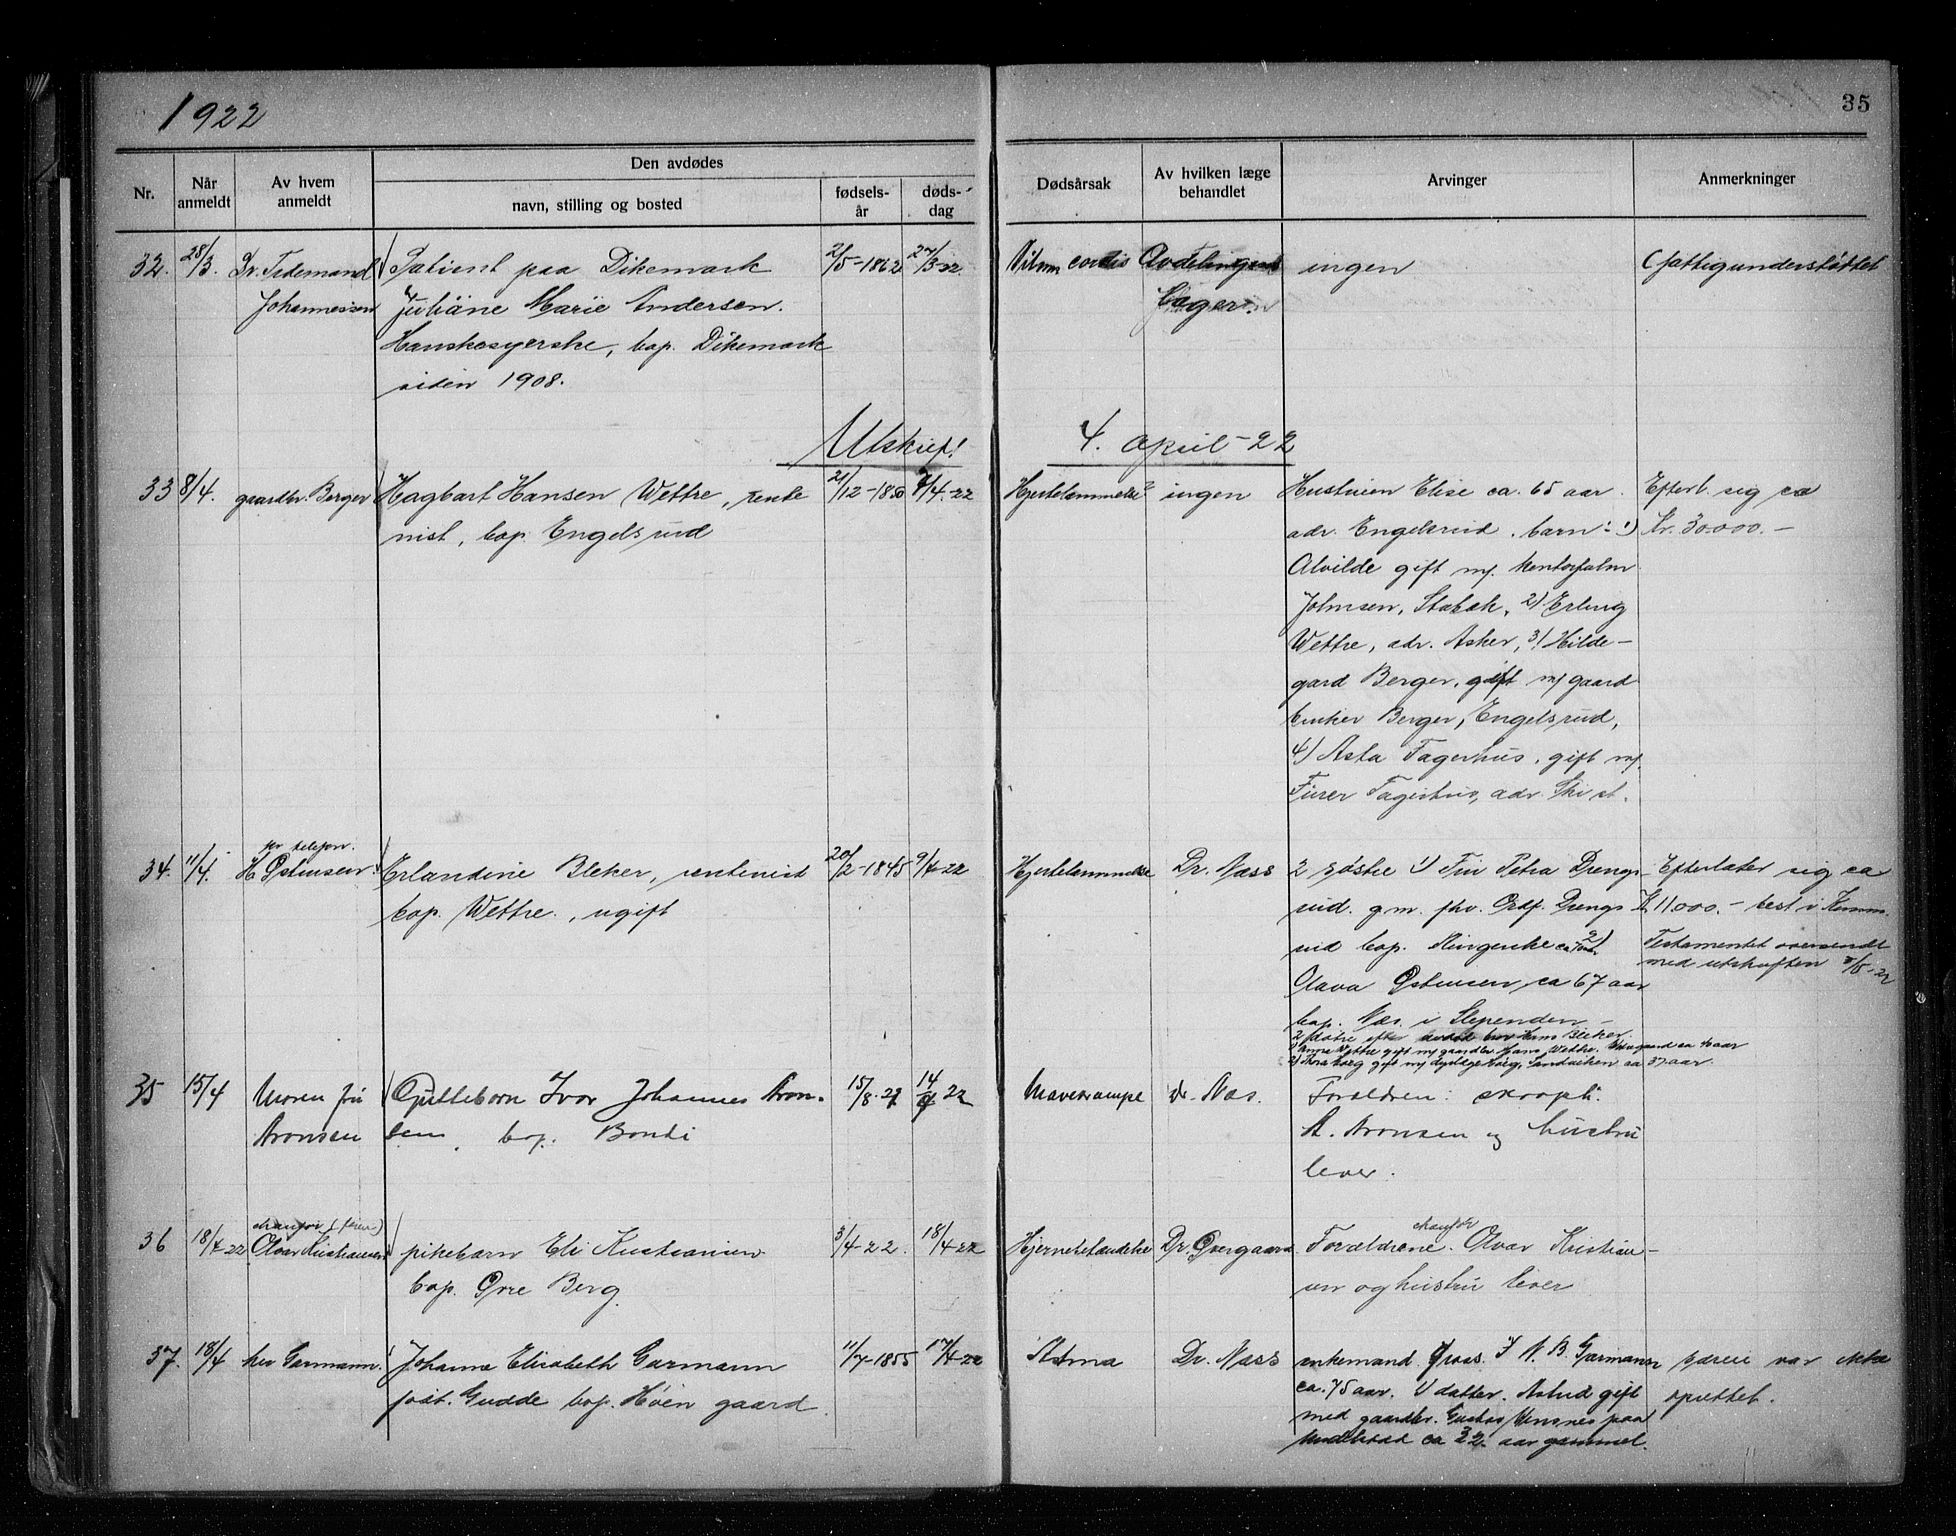 1922
35
Nr.
Når anmeldt
Av hvem anmeldt
Den avdødes
navn, stilling og bosted
fødsels-år
døds-dag
Dødsårsak
Av hvilken læge behandlet
Arvinger
Anmerkninger
32. 28/3. Dr. Tidemand Patient paa Dikemark 2/5-1862 27/3-22 Vitium cordis ingen (fattigunderstøttet
Johannessen Juliane Marie Andersen.
Hanskesyerske, bop. Dikemark
siden 1908.
Utskrift 4. april-22
33 8/4. gaardbr. Berger Hagbart Hansen Wettre, rente 21/12-1850 7/4-22 Hjertelammelse? ingen Hustruen Elise ca. 65 aar. Efterl. sig ca
nist, bop. Engelsrud adr. Engelsrud. barn: 1) Kr. 30.000.-
Alvilde gift m/. kontorfuldm.
Johnsen, Stabæk, 2) Erling
Wettre, adr. Asker, 3) Hilde-
gard Berger, gift m/ gaard
bruker Berger, Engelsrud,
4) Asta Fagerhus, gift m/.
Fagerhus, adr. Ski st.
per telefon.
34. 11/4. H Østensen Erlandine Bleker, rentenist 20/2-1845 9/4-22 Hjertelammelse Dr. Næss 2 søstre 1) Fru Petra Drengs- Efterlater sig ca
bop. Wettre., ugift rud. g.m. fhv. Ordf. Drengs Kr 11.000.- best i
rud bop. Ringerike 2) Testamentet oversendt
med utskriften
Olava Østensen, ca 67 aar
bop. Næs i Slependen-
2 døtre efter avdøde bror Hans Bleker
1) Anna Wettre gift m/ gaardbr. Hans Wettre, ca 40 aar
2) gift m/ Sandviken ca 37 aar.
35 15/4 Moren fru Guttebarn Ivar Johannes Aron- 15/8-21 14/4 22 Mavekrampe dr. Næs. Foreldrene: skraph.
Aronsen sen, bop. Bondi A. Aronsen og hustru
lever.
chauffør (faren)
36 18/4-22 Olvar Kristiansen pikebarn Eli Kristiansen 3/4-22. 18/4-22 Hjernebetændelse Dr. Overgaard Forældrene. chauffør Olvar Kristian-
bop. Øvre Berg. sen og hustru lever
37. 18/4 hr. Garmann. Johanna Elisabeth Garmann 11/7-1855 17/4-22 Astma Dr. Næss enkemand. Gross. F N. B. Garmann
født. Gudde bop. Høn gaard ca. 75 aar. 1) datter. Astrid gift
med gaardbr. Gustav paa
ca 32 aar gammel.
særeie var ikke
oprettet.